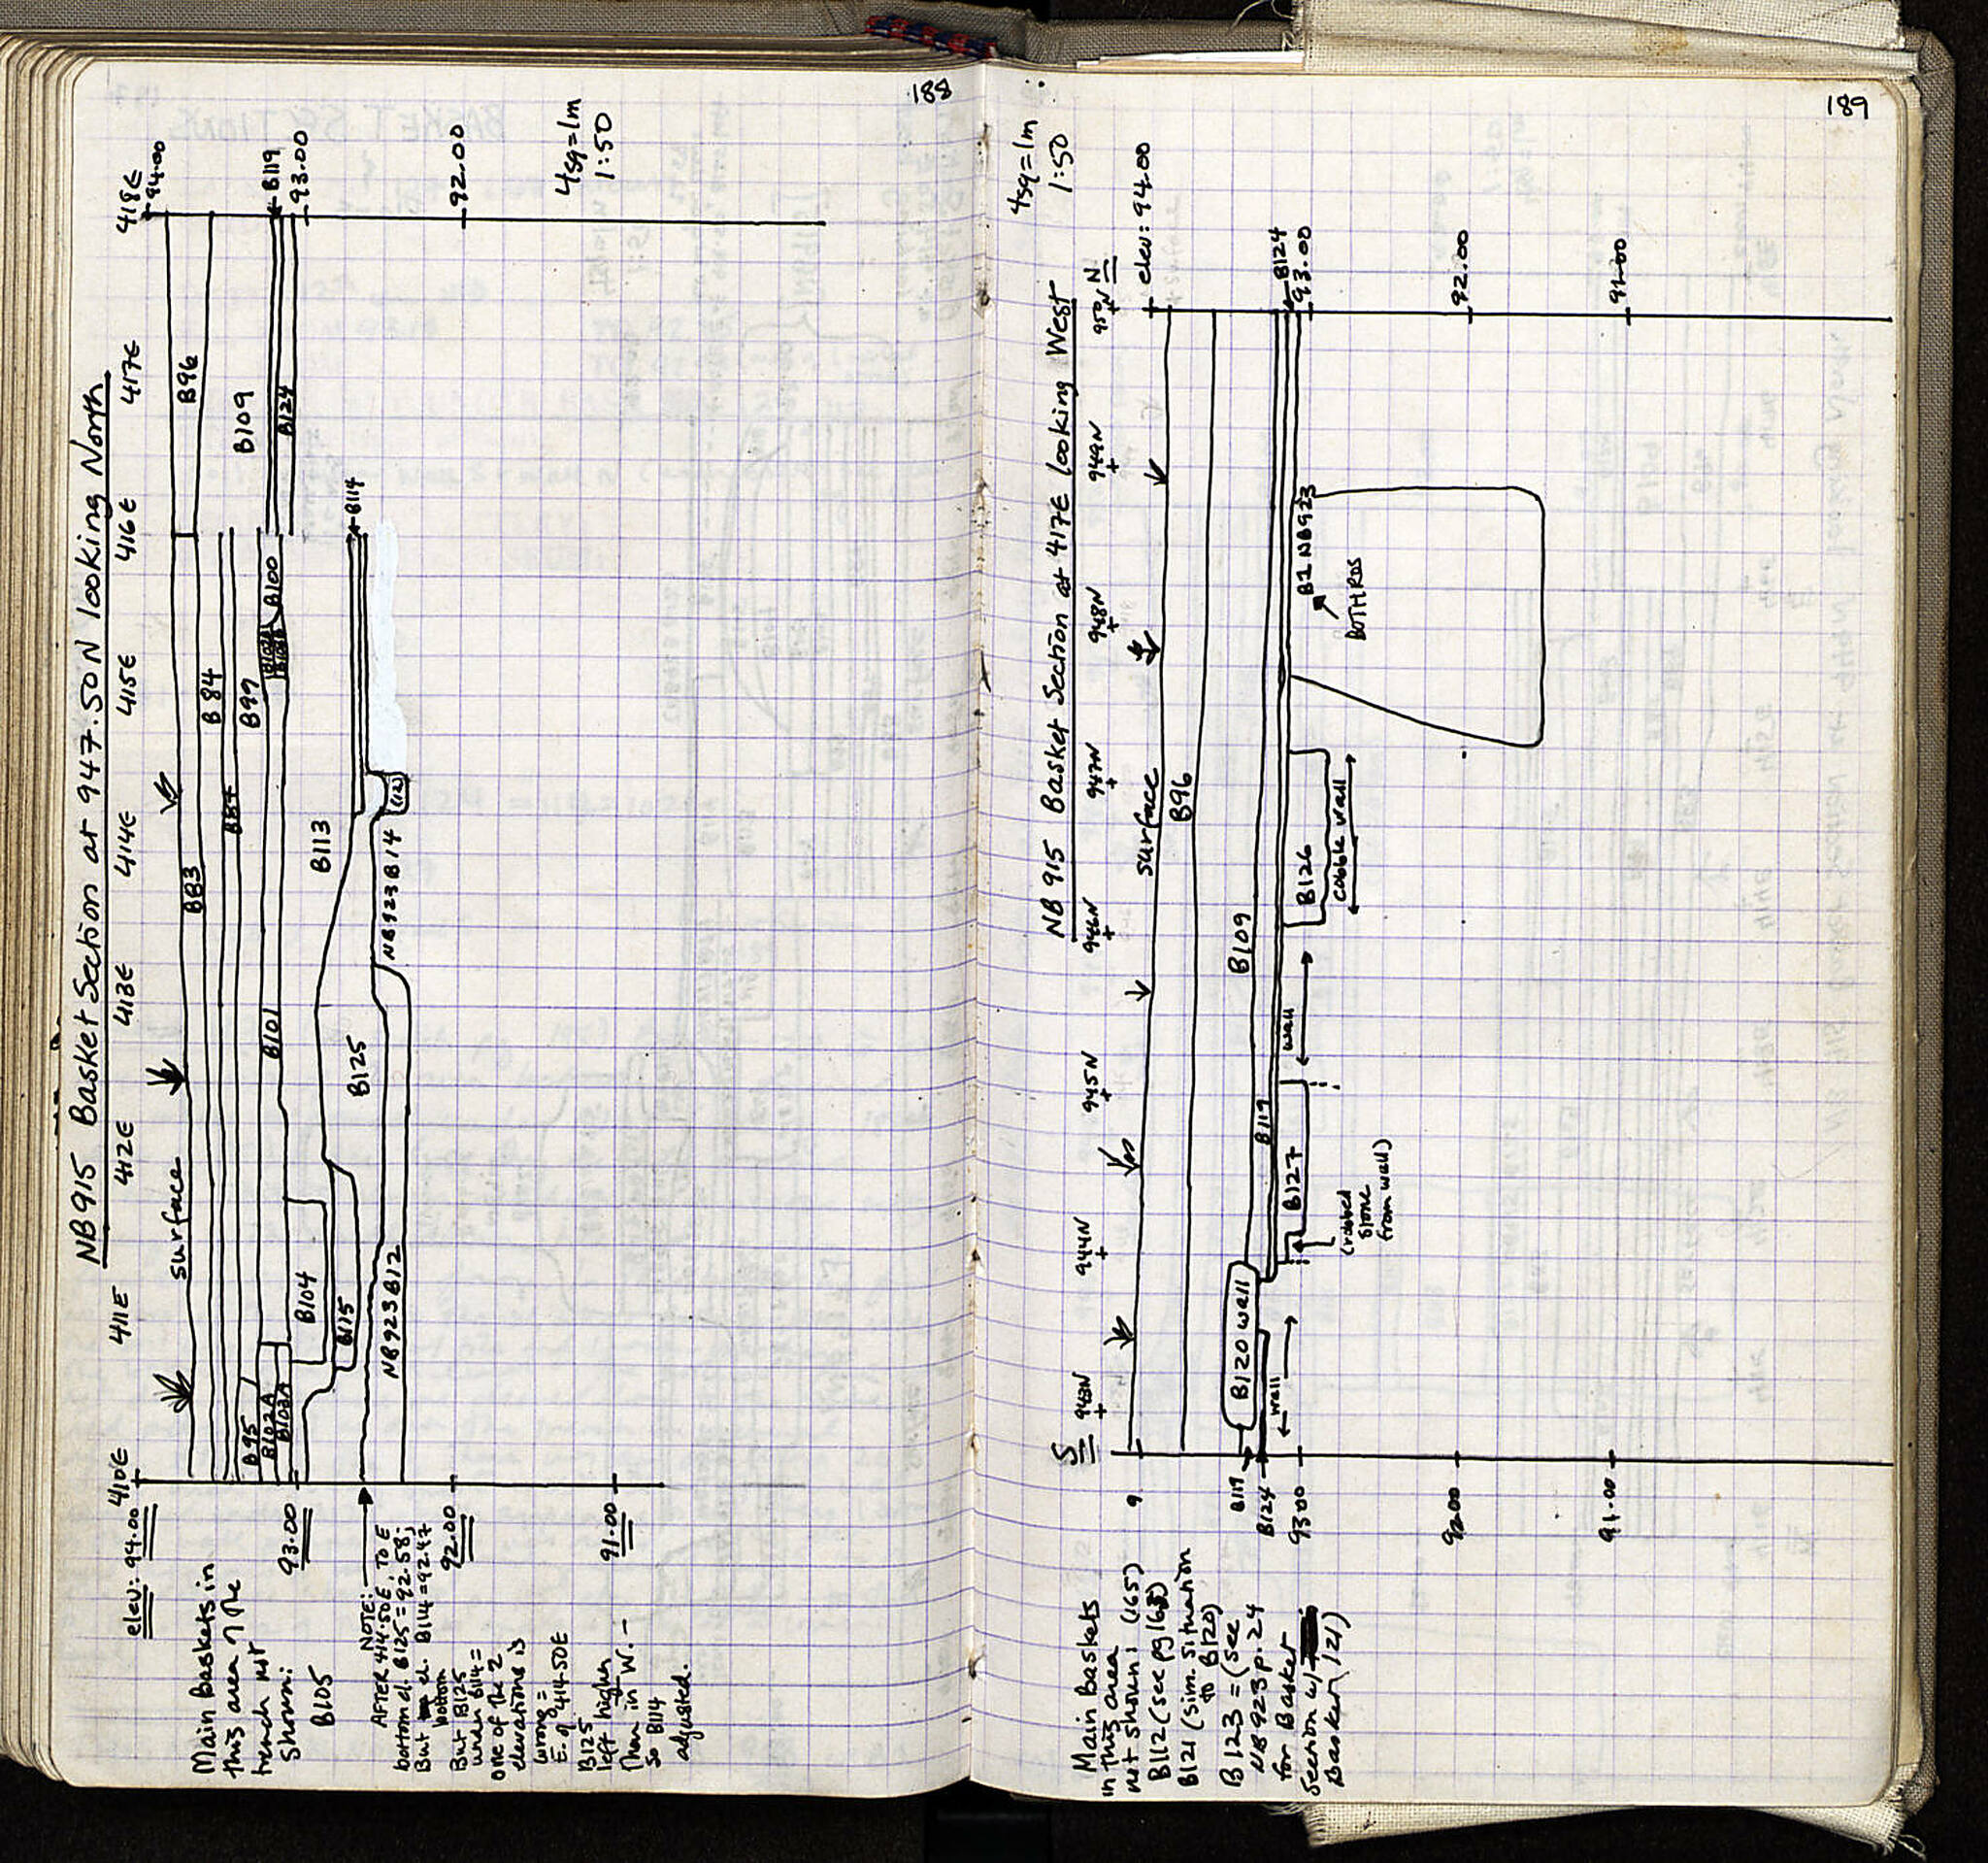 188
NB915 Basket Section at 947.50N looking North
410E 411E 412E 413E 414E 415E 416E 417E 418E
elev: 94.00
94.00
surface
B83
B84
B96
B84
B95
B99
B109
B119
93.00
93.00
B102A
B103A
B101
B100
B124
B104
B113
B114
B115
B125
NB923 B12
NB923 B14
(12)
92.00
92.00
91.00
4sq=1m
1:50
Main baskets in
this area of the
trench not
shown:
B105
NOTE:
AFTER 414.50E, TO E
bottom el. B125=92.58;
But el. B114=92.47
bottom
But B125
under B114 =
one of the 2
elevations is
wrong =
E. of 414.50E
B125
left higher
Than in W. –
so B114
adjusted.
189
4sq=1m
1:50
NB 915 Basket Section at 417E looking West
S
943N 944N 945N 946N 947N 948N 949N 950N
N
elev: 94.00
9
surface
B96
B109
B120 wall
B119
B119
B124
B124
93.00
93.00
wall
B127
wall
B126
cobble wall
B1 NB923
BOTHROS
(robbed
stone
from wall)
92.00
92.00
91.00
91.00
Main baskets
in this area
not shown: (165)
B112 (see pg 168)
B121 (sim. situation
to B120)
B123 = (see
NB 923 p. 24
for Basket
Section w/
Basket 121)